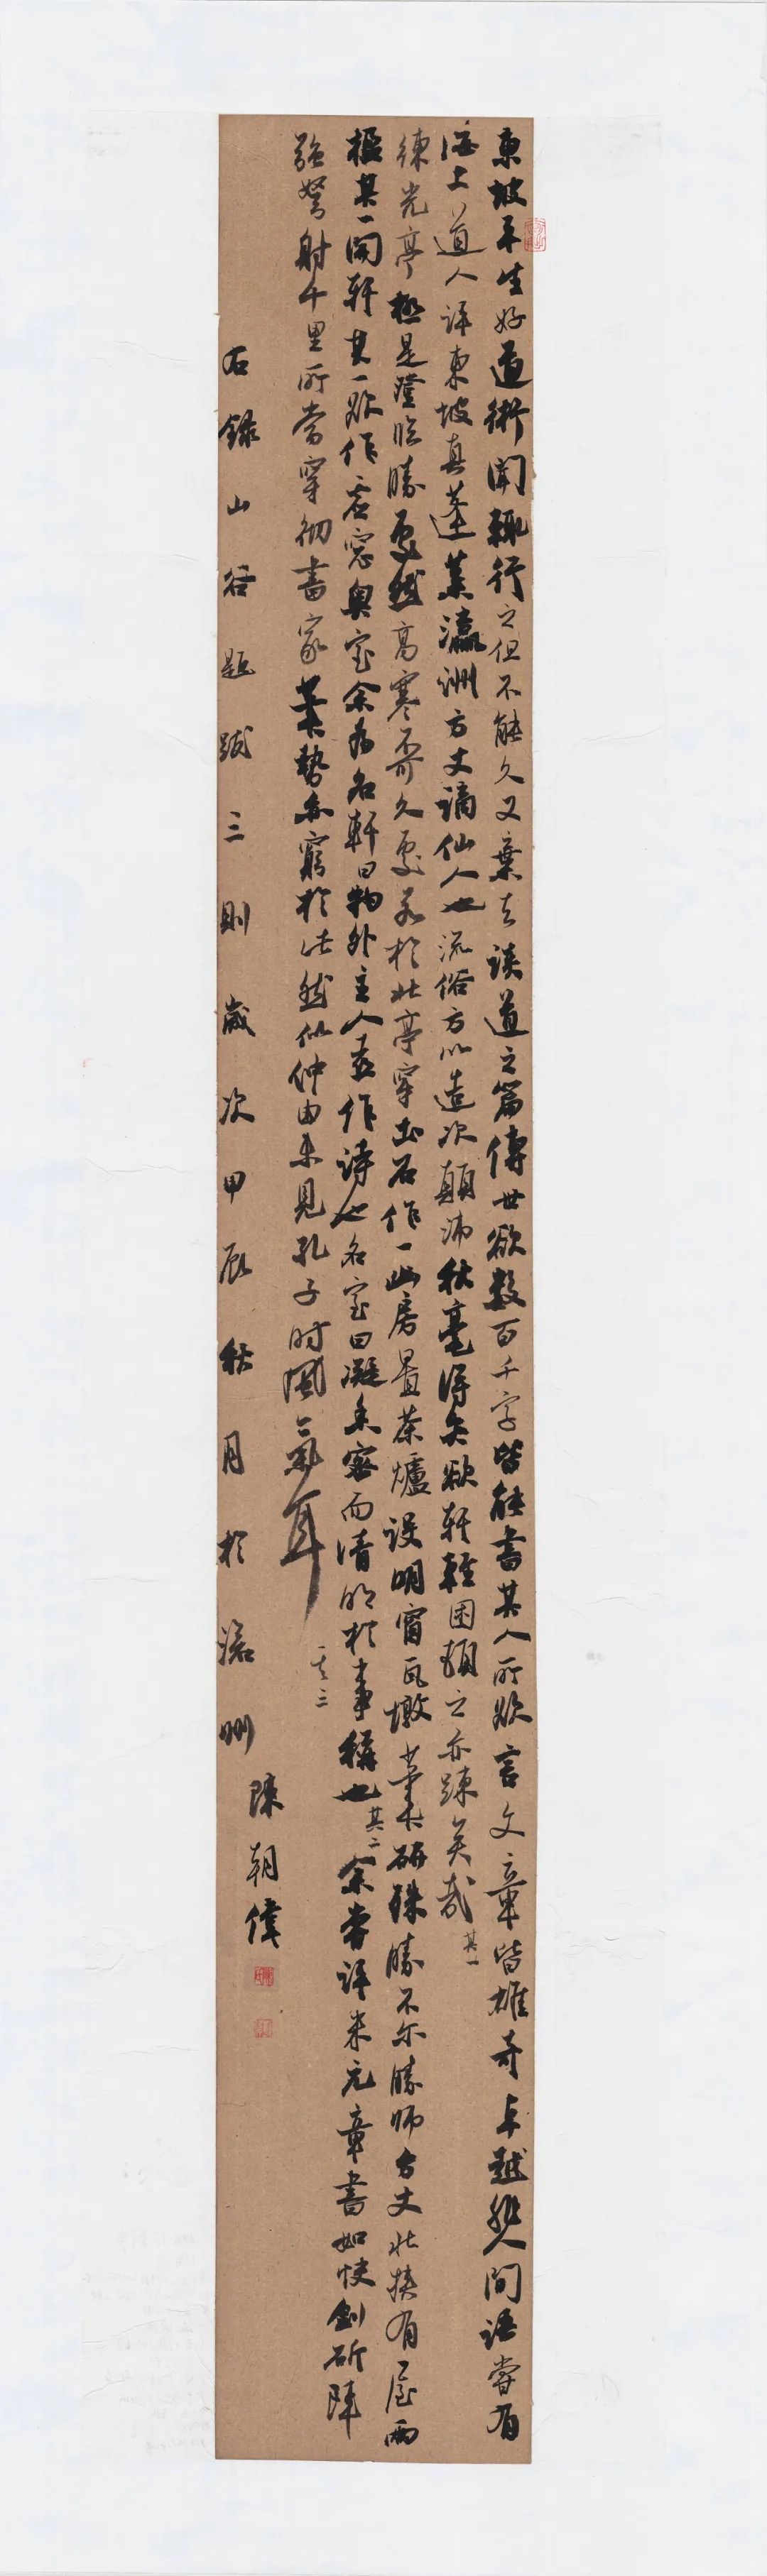 東坡平生好道術聞輒行之但不能久又棄去談道之篇傳世欲數百千字皆能書其人所欲言文章皆雄奇卓越非人間語嘗有
海上道人評東坡真蓬萊瀛洲方丈謫仙人也流俗方以造次顛沛秋毫得失欲軒輊困頓之亦疎矣哉其一
練光亭極是登臨勝處然高寒不可久處若於北亭穿土石作一幽房置茶爐設明窗瓦墩筆研殊勝不尔勝師方丈北挾有屋兩
楹其一開軒其一欲作虛窓奧室余為名軒曰物外主人喜作詩也名室曰凝香密而清明於事稱也其二余嘗評米元章書如快劍斫陣
強弩射千里所當穿徹書家筆勢亦窮於此然似仲由未見孔子時風氣耳其三
右錄山谷題跋三則歲次甲辰秋月於滄州
陳朝偉